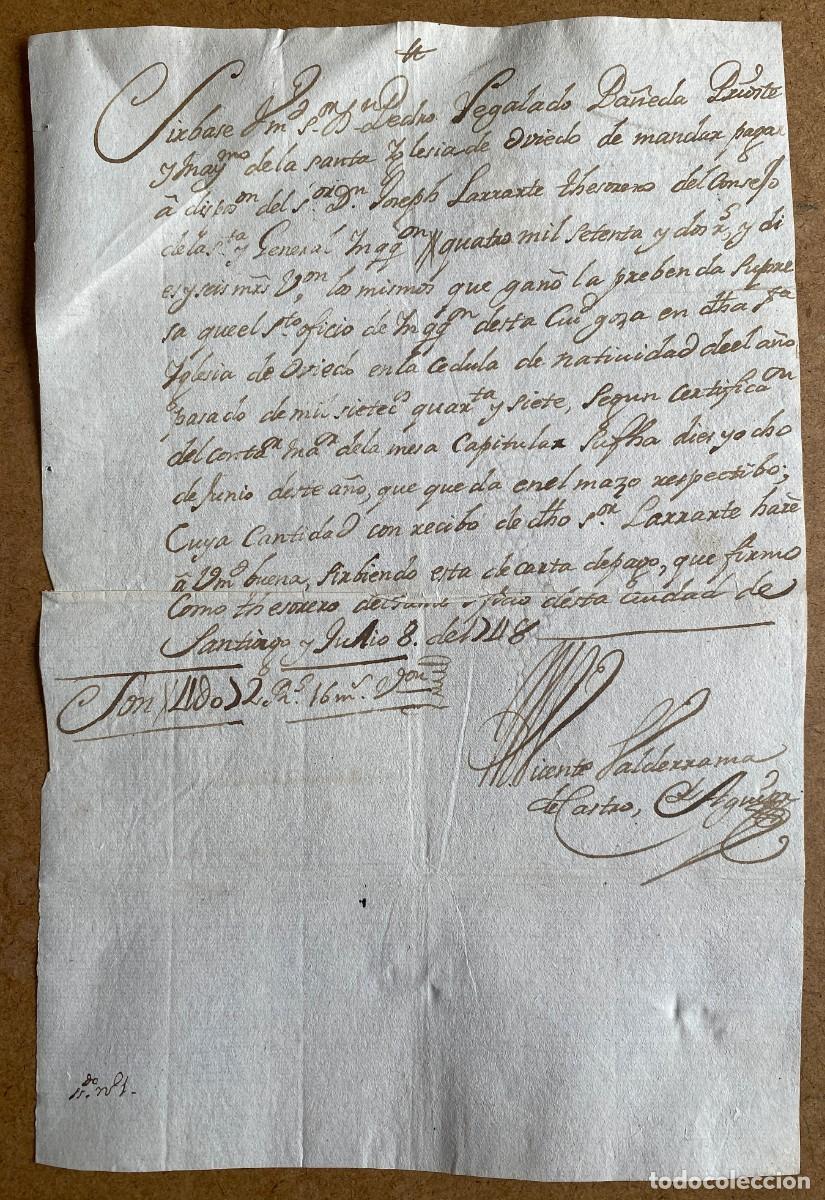 Sirbase Vmd Sor Dn Pedro Regalado Bañeda Prioste
y Maymo de la santa Yglesia de Oviedo de mandar pagar
â dispon del sor Dn Joseph Larrarte thesorero del Consejo
de la sta y General Inqqon quatro mil setenta y dos rs, y di
es y seis mrs Von, los mismos que ganó la prebenda supre
sa que el sto oficio de Inqqon desta Ciud goza en dha sta
Yglesia de Oviedo en la cedula de natividad de el año
pasado de mil sietecs quarta y siete, segun certificaon
del contar mar de la mesa Capitular su fha dies y ocho
de Junio deste año, que queda en el mazo respectibo;
Cuya Cantidad con recibo de dho sor Larrarte harè
â Vmd buena, sirbiendo esta de carta de pago, que firmo
Como thesorero del santo oficio desta Ciudad de
Santiago y Julio 8. de 1748
Son 4072 Rs. 16 ms. Von
Vicente Valderrama
de Castro,
todocoleccion